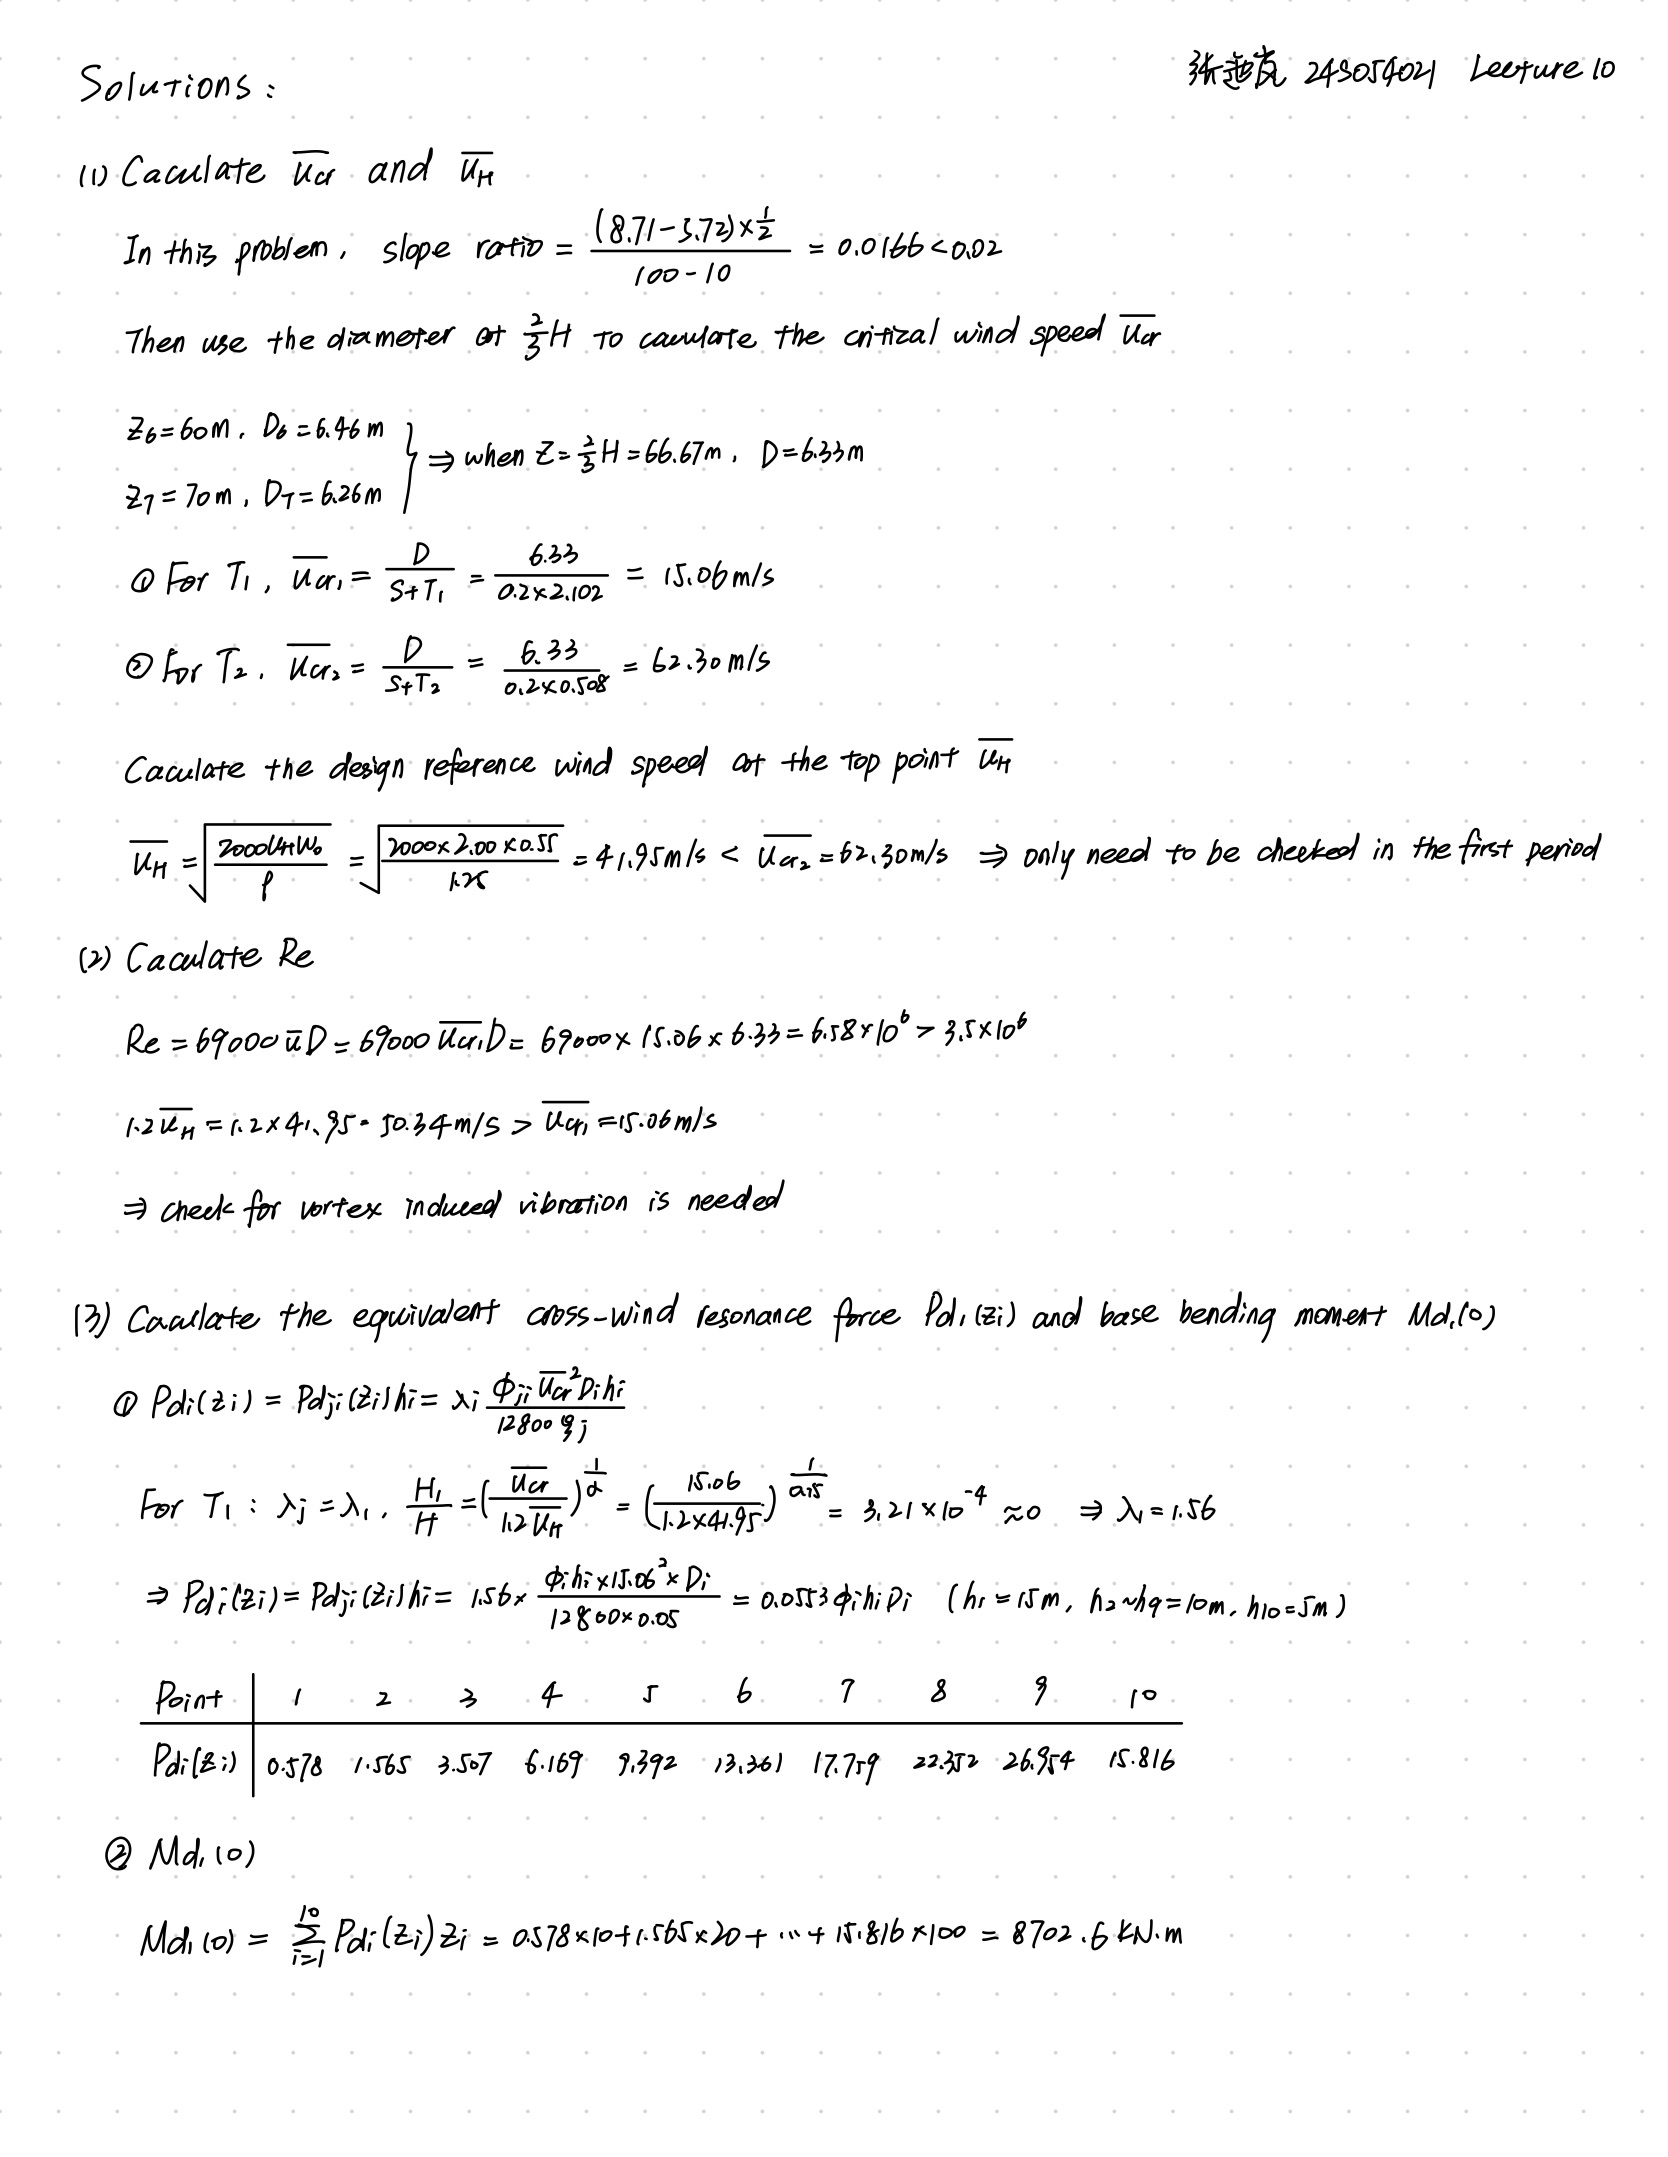 243054021 Lecture 10
Solutions:
(1) Caculate u̅cr and u̅H
In this problem, slope ratio = ((8.71-5.72)×1/2)/(100-10) = 0.0166<0.02
Then use the diameter at 2/3H to caculate the critical wind speed u̅cr
Z6=60m, D6=6.46m
⇒ when Z=2/3H=66.67m, D=6.33m
Z7=70m, D7=6.26m
① For T1, u̅cr1 = D/(StT1) = 6.33/(0.2×2.102) = 15.06m/s
② For T2, u̅cr2 = D/(StT2) = 6.33/(0.2×0.508) = 62.30m/s
Caculate the design reference wind speed at the top point u̅H
u̅H = √(2000μHw0/ρ) = √(2000×2.00×0.55/1.25) = 41.95m/s < u̅cr2 = 62.30m/s ⇒ only need to be checked in the first period
(2) Caculate Re
Re = 69000u̅D = 69000u̅cr1D = 69000×15.06×6.33 = 6.58×10^6 > 3.5×10^6
1.2u̅H = 1.2×41.95 = 50.34m/s > u̅cr1 = 15.06m/s
⇒ check for vortex induced vibration is needed
(3) Caculate the equivalent cross-wind resonance force Pd1(zi) and base bending moment Md1(0)
① Pdi(zi) = Pdji(zi)hi = λj ϕji u̅cr²Dihi/(12800ζj)
For T1: λj=λ1, H1/H = (u̅cr/(1.2u̅H))^(1/α) = (15.06/(1.2×41.95))^(1/0.15) = 3.21×10^-4 ≈0 ⇒ λ1=1.56
⇒ Pdi(zi) = Pdji(zi)hi = 1.56× ϕihi×15.06²×Di/(12800×0.05) = 0.0553ϕihiDi (h1=15m, h2~h9=10m, h10=5m)
Point 1 2 3 4 5 6 7 8 9 10
Pdi(zi) 0.578 1.565 3.507 6.169 9.392 13.361 17.759 22.352 26.954 15.816
② Md1(0)
Md1(0) = ∑_{i=1}^{10} Pdi(zi)zi = 0.578×10+1.565×20+…+15.816×100 = 8702.6 kN·m